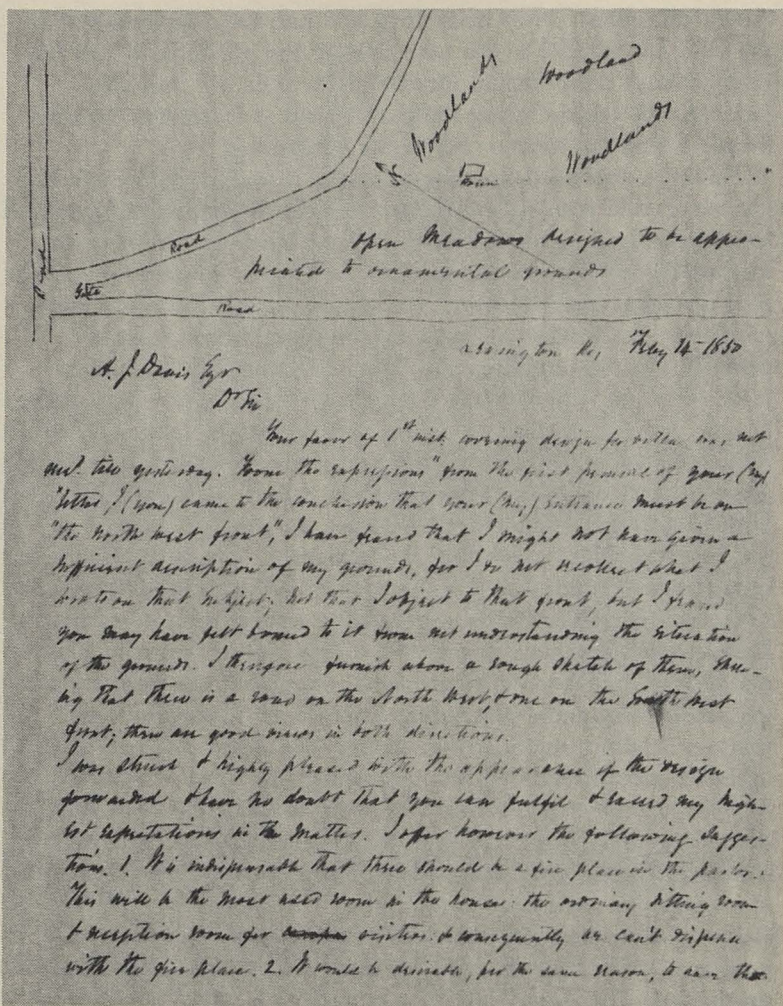 Woodlands
Woodland
Woodlands
House
Road
Road
open Meadows designed to be appro-
priated to ornamental grounds
Gate
Road
Lexington Ky, Feby 14 1850
A. J. Davis Esqr
Dr Sir
Your favor of 1st inst. covering design for villa was not
recd. till yesterday. From the expressions "from the first perusal of your (my)
"letter, I (you) came to the conclusion that your (my) entrance must be on
"the north west front", I have feared that I might not have given a
sufficient description of my grounds, for I do not recollect what I
wrote on that subject; not that I object to that front, but I feared
you may have felt bound to it from not understanding the situation
of the grounds. I therefore furnish above a rough sketch of them, show-
ing that there is a road on the North West, & one on the South West
front; there are good views in both directions.
I was struck & highly pleased with the appearance of the design
forwarded & have no doubt that you can fulfil & exceed my high-
est expectations in the matter. I offer however the following sugges-
tions. 1. It is indispensable that there should be a fire place in the parlor.
This will be the most used room in the house: the ordinary sitting room
& reception room for visitors & consequently we can't dispense
with the fire place. 2. It would be desirable, for the same reason, to have the